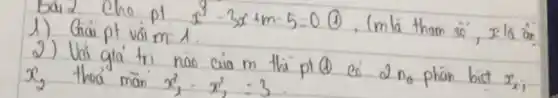 Bài 2 Cho pt x² - 3x + m - 5 = 0 ①, (m là tham số, x là ẩn
1) Giải pt với m = 1.
2) Với giá trị nào của m thì pt ① có 2 n₀ phân biệt x₁;
x₂ thoả mãn x₁² - x₂² = 3.